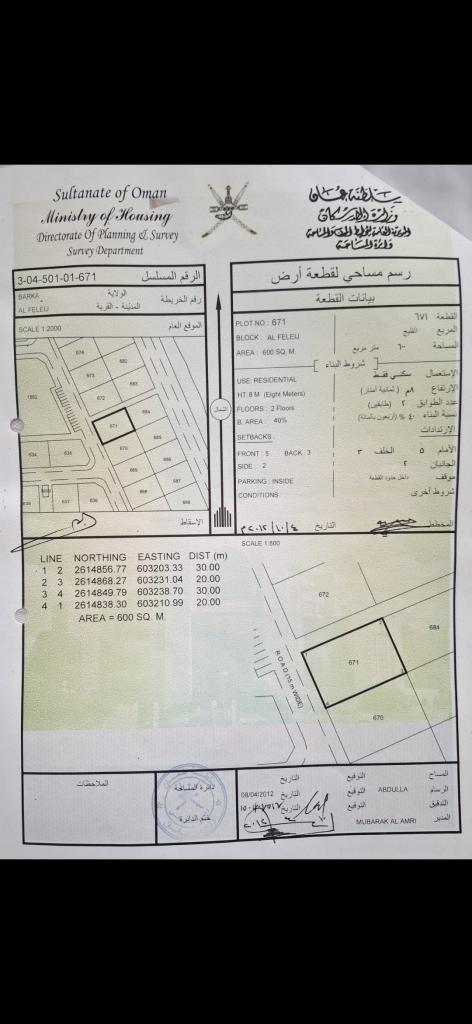 Sultanate of Oman
Ministry of Housing
Directorate of Planning & Survey
Survey Department
سلطنة عمان
وزارة الإسكان
دائرة المساحة
3-04-501-01-671 الرقم المسلسل
BARKA الولاية
المدينة - القرية رقم الخريطة
AL FELEIJ
SCALE 1:2000 الموقع العام
674
682
673
672
1662
684
671
670
685
634
635
686
687
636
637
688
689
الإسقاط
الشمال
رسم مساحي لقطعة أرض
بيانات القطعة
PLOT NO : 671
القطعة ٦٧١
BLOCK : AL FELEU
المربع الفليج
AREA : 600 SQ. M.
المساحة ٦٠٠ متر مربع
شروط البناء
USE: RESIDENTIAL
الإستعمال سكني فقط
HT: 8 M (Eight Meters)
الإرتفاع ٨م (ثمانية أمتار)
FLOORS : 2 Floors
عدد الطوابق ٢ (طابقين)
B. AREA : 40%
نسبة البناء ٤٠ % (أربعون بالمائة)
SETBACKS :
الإرتدادات
FRONT : 5 BACK : 3
الأمام ٥ الخلف ٣
SIDE : 2
الجانبان ٢
PARKING : INSIDE
موقف داخل حدود القطعة
CONDITIONS :
شروط أخرى
المخطط التاريخ ٢٠١٢/١٠/٤م
SCALE 1:800
LINE NORTHING EASTING DIST (m)
1 2 2614856.77 603203.33 30.00
2 3 2614868.27 603231.04 20.00
3 4 2614849.79 603238.70 30.00
4 1 2614838.30 603210.99 20.00
AREA = 600 SQ. M.
672
684
671
670
ROAD (15 m WIDE)
الملاحظات
دائرة المساحة
ختم الدائرة
المساح التوقيع التاريخ
الرسام ABDULLA التوقيع التاريخ 08/04/2012
التدقيق التوقيع التاريخ
المدير MUBARAK AL AMRI